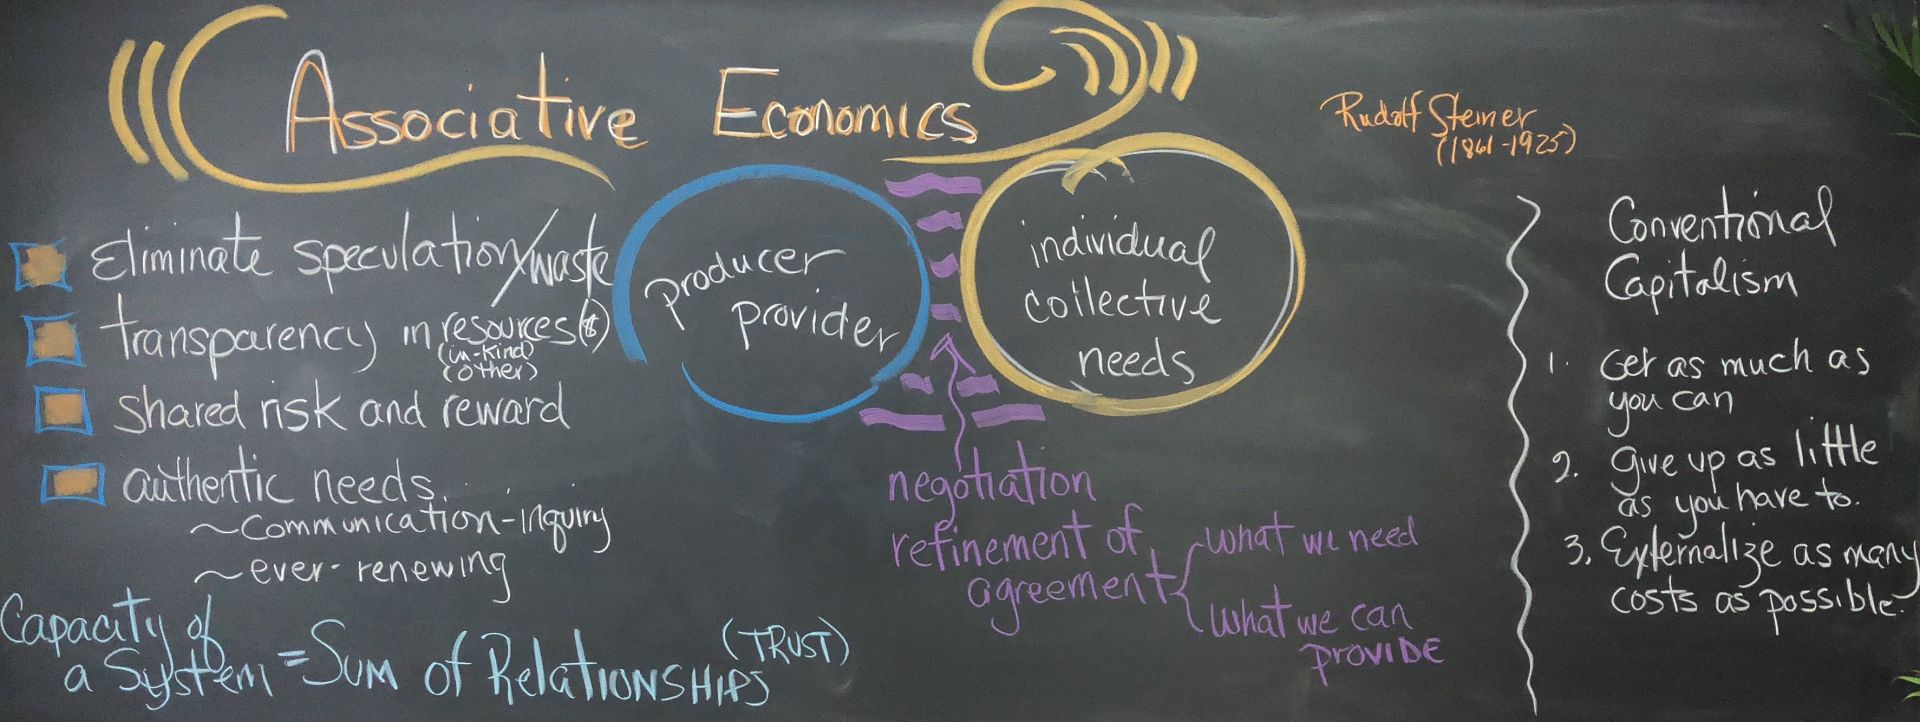 Associative Economics
Rudolf Steiner
(1861-1925)
Eliminate speculation/waste
transparency in resources($)
(in-kind)
(other)
shared risk and reward
authentic needs.
~communication-inquiry
~ever-renewing
Capacity of
a System = Sum of Relationships
(TRUST)
producer
provider
individual
collective
needs
negotiation
refinement of
agreement
what we need
what we can
provide
Conventional
Capitalism
1. Get as much as
you can
2. Give up as little
as you have to.
3. Externalize as many
costs as possible.